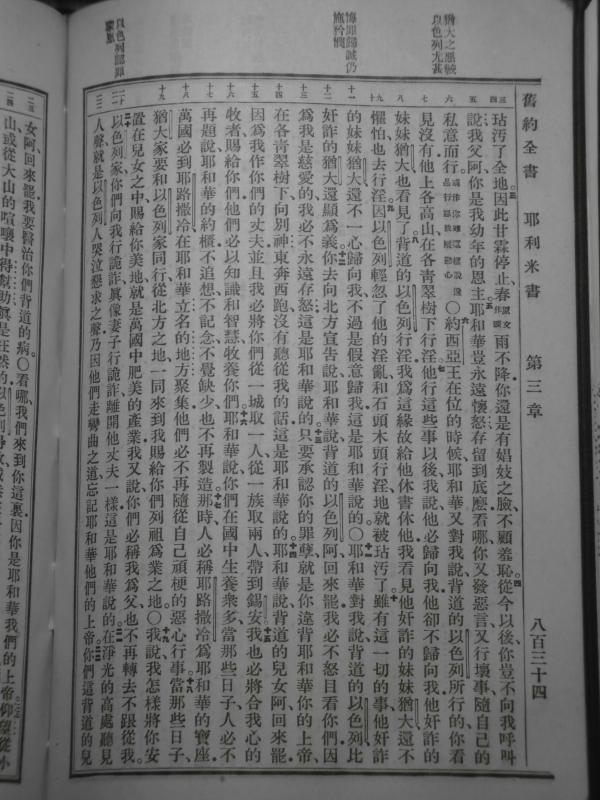 舊約全書 耶利米書 第三章 八百三十四
猶大之惡較
以色列尤甚
悔罪歸誠仍
施矜憫
以色列認罪
三四
五
六
七
八
九十
十一
十二
十三
十四
十五
十六
十七
十八
十九
玷汚了全地因此甘霖停止春雨不降你還是有娼妓之臉不顧羞恥從今以後你豈不向我呼叫
說我父阿你是我幼年的恩主耶和華豈永遠懷怒存留到底麽看哪你又發惡言又行壞事隨自己的
私意而行○約西亞王在位的時候耶和華又對我說背道的以色列所行的你看
見沒有他上各高山在各靑翠樹下行淫他行這些事以後我說他必歸向我他卻不歸向我他奸詐的
妹妹猶大也看見了背道的以色列行淫我爲這緣故給他休書休他我看見他奸詐的妹妹猶大還不
懼怕也去行淫因以色列輕忽了他的淫亂和石頭木頭行淫地就被玷汚了雖有這一切的事他奸詐
的妹妹猶大還不一心歸向我不過是假意歸我這是耶和華說的○耶和華對我說背道的以色列比
奸詐的猶大還顯爲義你去向北方宣告說耶和華說背道的以色列阿回來罷我必不怒目看你們因
爲我是慈愛的我必不永遠存怒這是耶和華說的只要承認你的罪孽就是你違背耶和華你的上帝
在各靑翠樹下向別神東奔西跑沒有聽從我的話這是耶和華說的耶和華說背道的兒女阿回來罷
因爲我作你們的丈夫並且我必將你們從一城取一人從一族取兩人帶到錫安我也必將合我心的
牧者賜給你們他們必以知識和智慧牧養你們耶和華說你們在國中生養衆多當那些日子人必不
再題說耶和華的約櫃不追想不記念不覺缺少也不再製造那時人必稱耶路撒冷爲耶和華的寶座
萬國必到耶路撒冷在耶和華立名的地方聚集他們必不再隨從自己頑梗的惡心行事當那些日子
猶大家要和以色列家同行從北方之地一同來到我賜給你們列祖爲業之地○我說我怎樣將你安
置在兒女之中賜給你美地就是萬國中肥美的產業我又說你們必稱我爲父也不再轉去不跟從我
以色列家你們向我行詭詐眞像妻子行詭詐離開他丈夫一樣這是耶和華說的在淨光的高處聽見
人聲就是以色列人哭泣懇求之聲乃因他們走彎曲之道忘記耶和華他們的上帝你們這背道的兒
女阿回來罷我要醫治你們背道的病○看哪我們來到你這裏因你是耶和華我們的上帝仰望從小
山或從大山的喧嚷中得幫助眞是枉然的